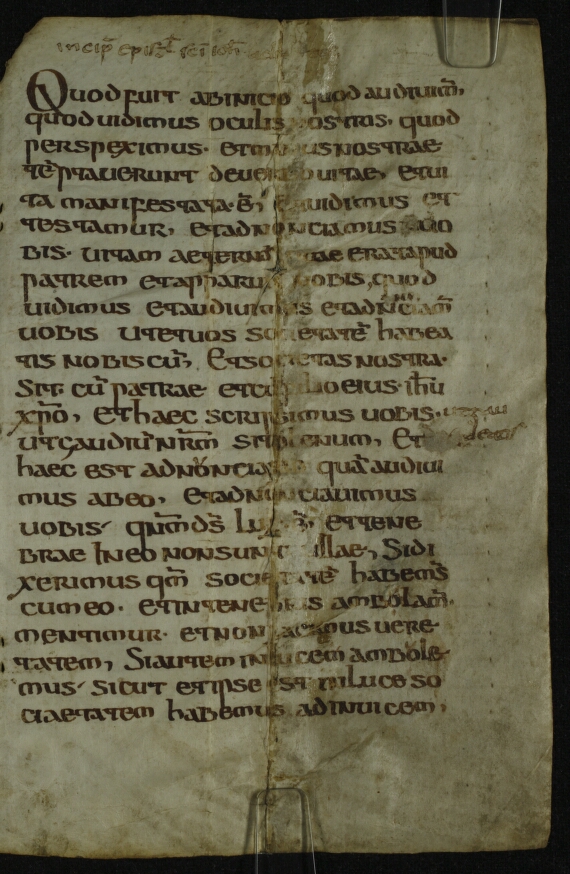 incip epist sci ioh
Quod fuit ab initio quod audiuim̄,
quod uidimus oculis nostris, quod
perspeximus. et manus nostrae
tēptauerunt de uerbo uitae, et ui
ta manifestata ē, et uidimus et
testamur, et adnonciamus uo
bis. uitam aeternā quae erat apud
patrem et apparuit nobis, quod
uidimus et audiuimus et adnonciam̄
uobis ut et uos societatē habea
tis nobiscū, Et societas nostra.
Sit cū patrae et cū filio eius ihū
xpō, Et haec scripsimus uobis. ut
ut gaudiū nrm̄ sit plenum, Et
haec est adnonciatio quā audiui
mus ab eo, Et adnonciauimus
uobis qnm̄ ds̄ lux ē, et tene
brae In eo non sunt ullae, Si di
xerimus qm̄ societatē habem̄s
cum eo. et in tenebris ambolam̄.
mentimur. et non facimus uere
tatem, Si autem in lucem ambole
mus sicut et ipse est in luce so
ciaetatem habemus ad inuicem,